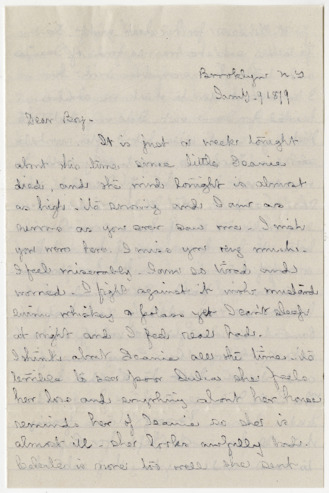 Brooklyn N.Y
Jany. 9 1879
Dear Boy-
It is just a week tonight
about this time since little Jeanie
died, and the wind tonight is almost
as high. Its snowing and I am as
nervous as you ever saw me. I wish
you were here. I miss you very much.
I feel miserably. I am so tired and
worried. I fight against it with mustard
wine whiskey & yet I can't sleep
at night and I feel real bad.
I think about Jeanie all the time. its
terrible to see poor Julia she feels
her loss and everything about her house
reminds her of Jeanie so she is
almost ill. She looks awfully bad.
is none too well she sent